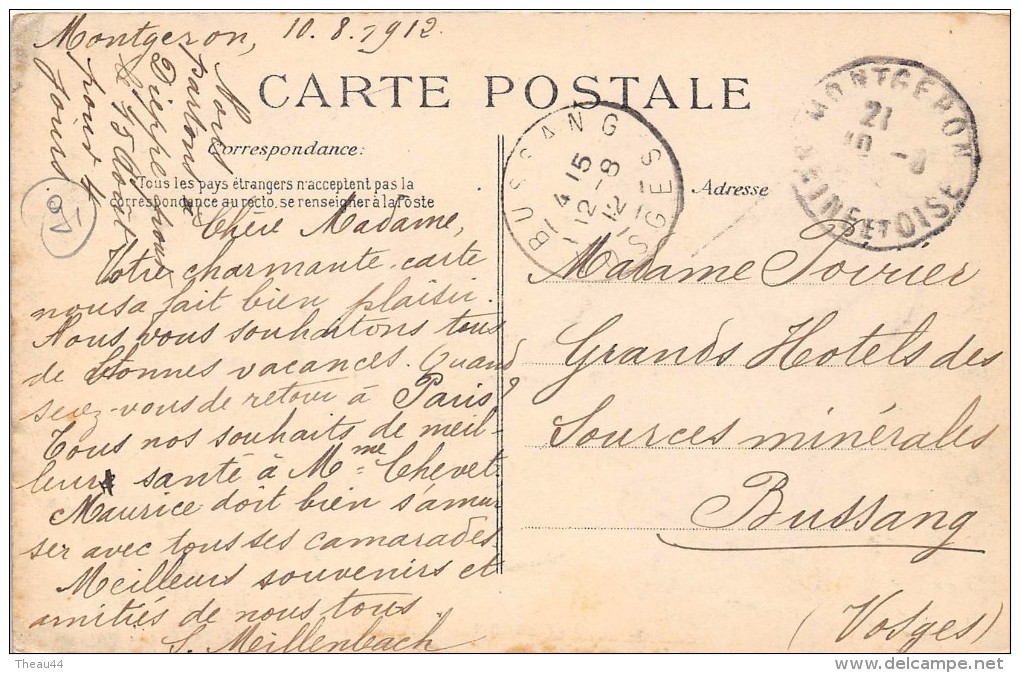 Montgeron, 10.8.1912
CARTE POSTALE
Correspondance:
Tous les pays étrangers n'acceptent pas la
correspondance au recto, se renseigner à la Poste
Adresse
Nous
partons à
Dieppe
le 15 Août
pour 4
jours
Chère Madame,
Votre charmante carte
nous a fait bien plaisir.
Nous vous souhaitons tous
de bonnes vacances. Quand
serez-vous de retour à Paris?
Tous nos souhaits de meil-
leure santé à Mme Chevet.
Maurice doit bien s'amu
ser avec tous ses camarades
Meilleurs souvenirs et
amitiés de nous tous.
S. Meillenbach
BUSSANG
VOSGES
14 15
12-8
12
MONTGERON
21
10 -8
SEINE ET OISE
Madame Poirier
Grands Hotels des
Sources minérales
Bussang
(Vosges)
Theau44
delcampe.net